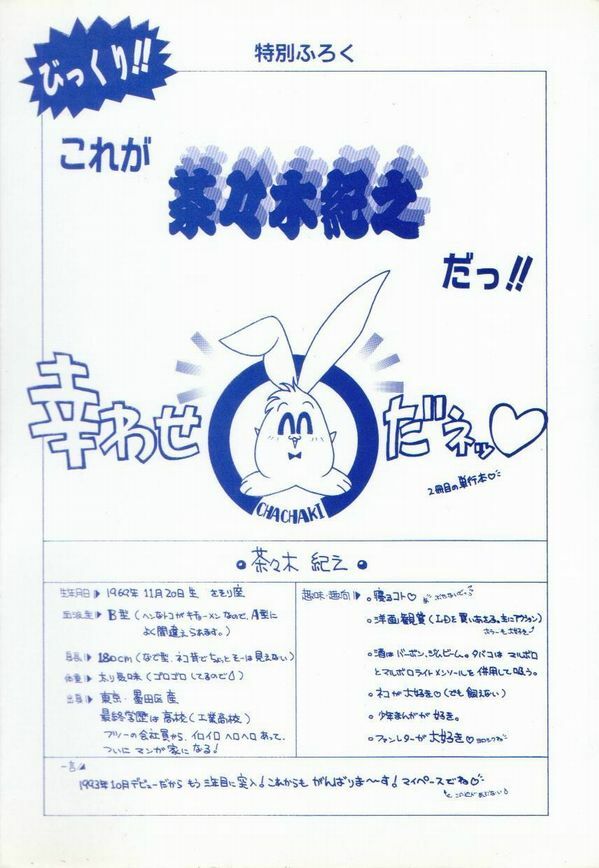 特別ふろく
びっくり!!
これが
茶々木紀之
だっ!!
幸わせ
だネッ♡
CHACHAKI
2冊目の単行本♡
●茶々木 紀之●
生年月日▶ 1969年 11月20日生 さそり座
血液型▶ B型(ヘンなトコがキチョーメンなので、A型に
よく間違えられます。)
身長▶ 180cm(なで型、ネコ背でちょっとそーは見えない)
体重▶ 太り気味(ゴロゴロしてるので)
出身▶ 東京・墨田区産
最終学歴は高校(工業高校)
フツーの会社員から、イロイロヘロヘロあって、
ついにマンガ家になる!
趣味・趣向▶ ○寝るコト♡
○洋画観賞(LDを買いあさる。主にアクション)
ホラーも大好き
○酒はバーボン、ジムビーム。タバコは マルボロ
とマルボロライトメンソールを併用して吸う。
○ネコが大好き♡(でも飼えない)
○少年まんがが好き。
○ファンレターが大好き♡ヨロシクね
一言
1993年10月デビューだからもう三年目に突入!これからも がんばりま〜す!マイペースでね♡